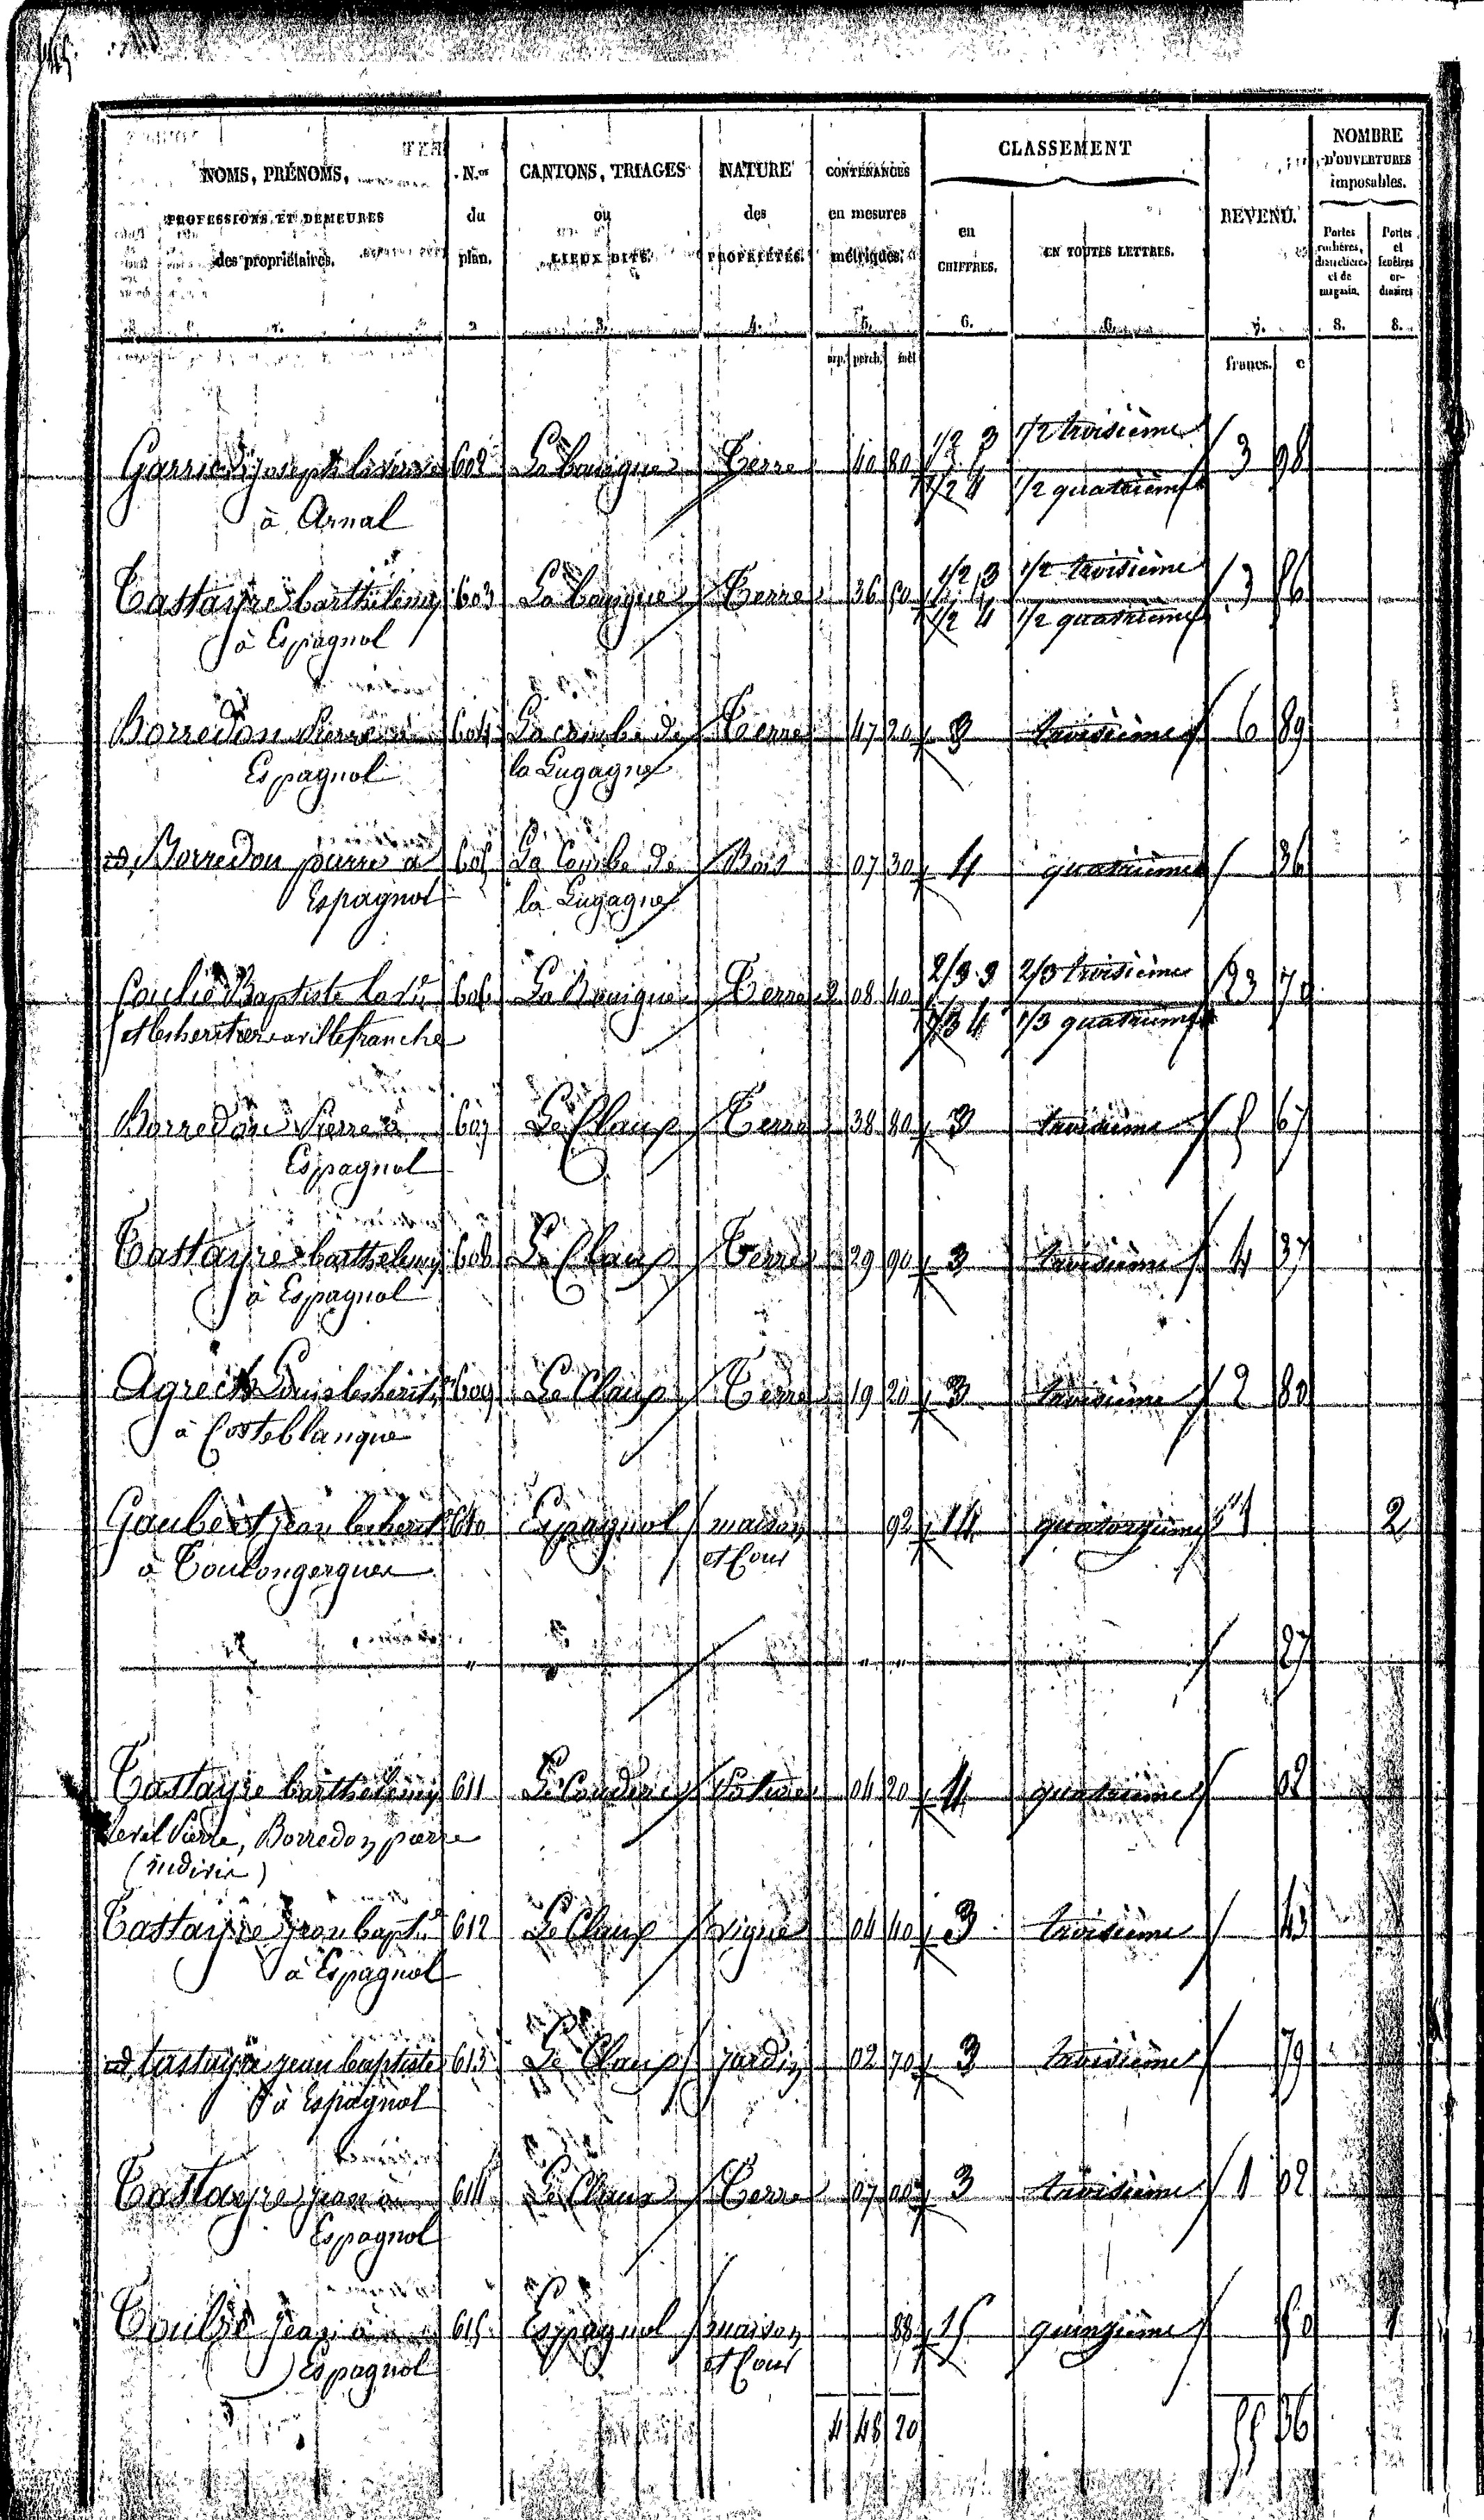 NOMS, PRÉNOMS,
PROFESSIONS ET DEMEURES
des propriétaires.
N.os
du
plan.
CANTONS, TRIAGES
ou
LIEUX DITS.
NATURE
des
PROPRIÉTÉS.
CONTENANCES
en mesures
métriques.
CLASSEMENT
en
CHIFFRES.
EN TOUTES LETTRES.
REVENU.
NOMBRE
D'OUVERTURES
imposables.
Portes
cochères,
charretières
et de
magasin.
Portes
et
fenêtres
or-
dinaires
1. 2 3. 4. 5. 6. 6. 7. 8. 8.
arp. perch. mèt francs. c
1/2 3 1/2 troisième
Joseph 602 Terre 40 80 3 98
1/2 4 1/2 quatrième
à Arnal
1/2 3 1/2 troisième
Tastayre barthelemy 603 Terre 36 90 3 86
1/2 4 1/2 quatrième
à Espagnol
Borredon Pierre à 604 La combe de Terre 47 20 3 troisième 6 89
Espagnol la Gugagne
id. Borredon pierre à 605 La Combe de Bois 07 30 4 quatrième 36
Espagnol la Gugagne
2/3 3 2/3 troisième
Baptiste 606 Terre 2 08 40 23 70
1/3 4 1/3 quatrième
villefranche
Borredon Pierre à 607 Le Claup Terre 38 80 3 troisième 5 67
Espagnol
Tastayre barthelemy 608 Le Claup Terre 29 90 3 troisième 4 37
à Espagnol
Louis 609 Le Claup Terre 19 20 3 troisième 2 80
à Costeblanque
Gaubert jean 610 Espagnol maison 92 14 quatorzième 1 2
à Toulongergues et Cour
" " " 27
Tastayre barthelemy 611 Pature 04 20 4 quatrième 02
Pierre, Borredon pierre
(indivis)
Tastayre jean bapte 612 Le Claup vigne 04 40 3 troisième 43
à Espagnol
id. tastayre jean baptiste 613 Le Claup jardin 02 70 3 troisième 79
à Espagnol
Tastayre jean à 614 Le Claup Terre 07 00 3 troisième 1 02
Espagnol
Jean à 615 Espagnol maison 88 15 quinzième 50 1
Espagnol et Cour
4 48 20 55 36